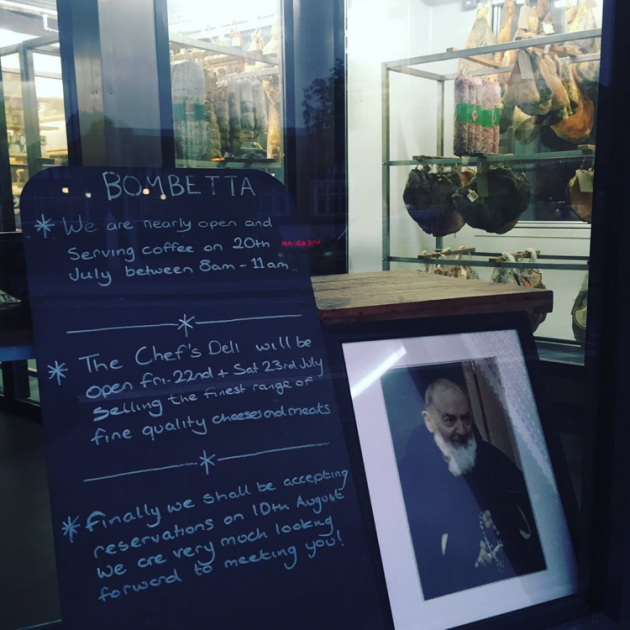 BOMBETTA
* We are nearly open and
serving coffee on 20th
July between 8am - 11am
*
* The Chef's Deli will be
open fri. 22nd + Sat 23rd July
selling the finest range of
fine quality cheeses and meats
*
* Finally we shall be accepting
reservations on 10th August
we are very much looking
forward to meeting you!